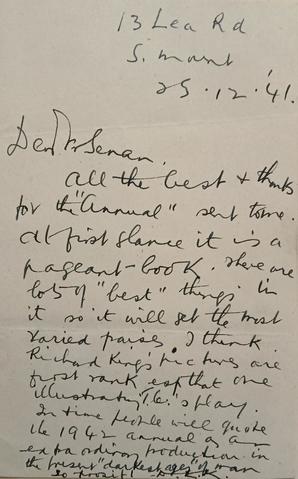 13 Lea Rd
S. mount
25.12.'41.
Dear Fr Senan,
All the best + thanks
for the "Annual" sent to me.
At first glance it is a
pageant-book. There are
lots of "best" things in
it so it will get the most
varied praises. I think
Richard King's pictures are
first rank esp. that one
illustrating 's play.
In time people will quote
the 1942 annual as an
extraordinary production in
the present "darkest ages" of man
So prosit!